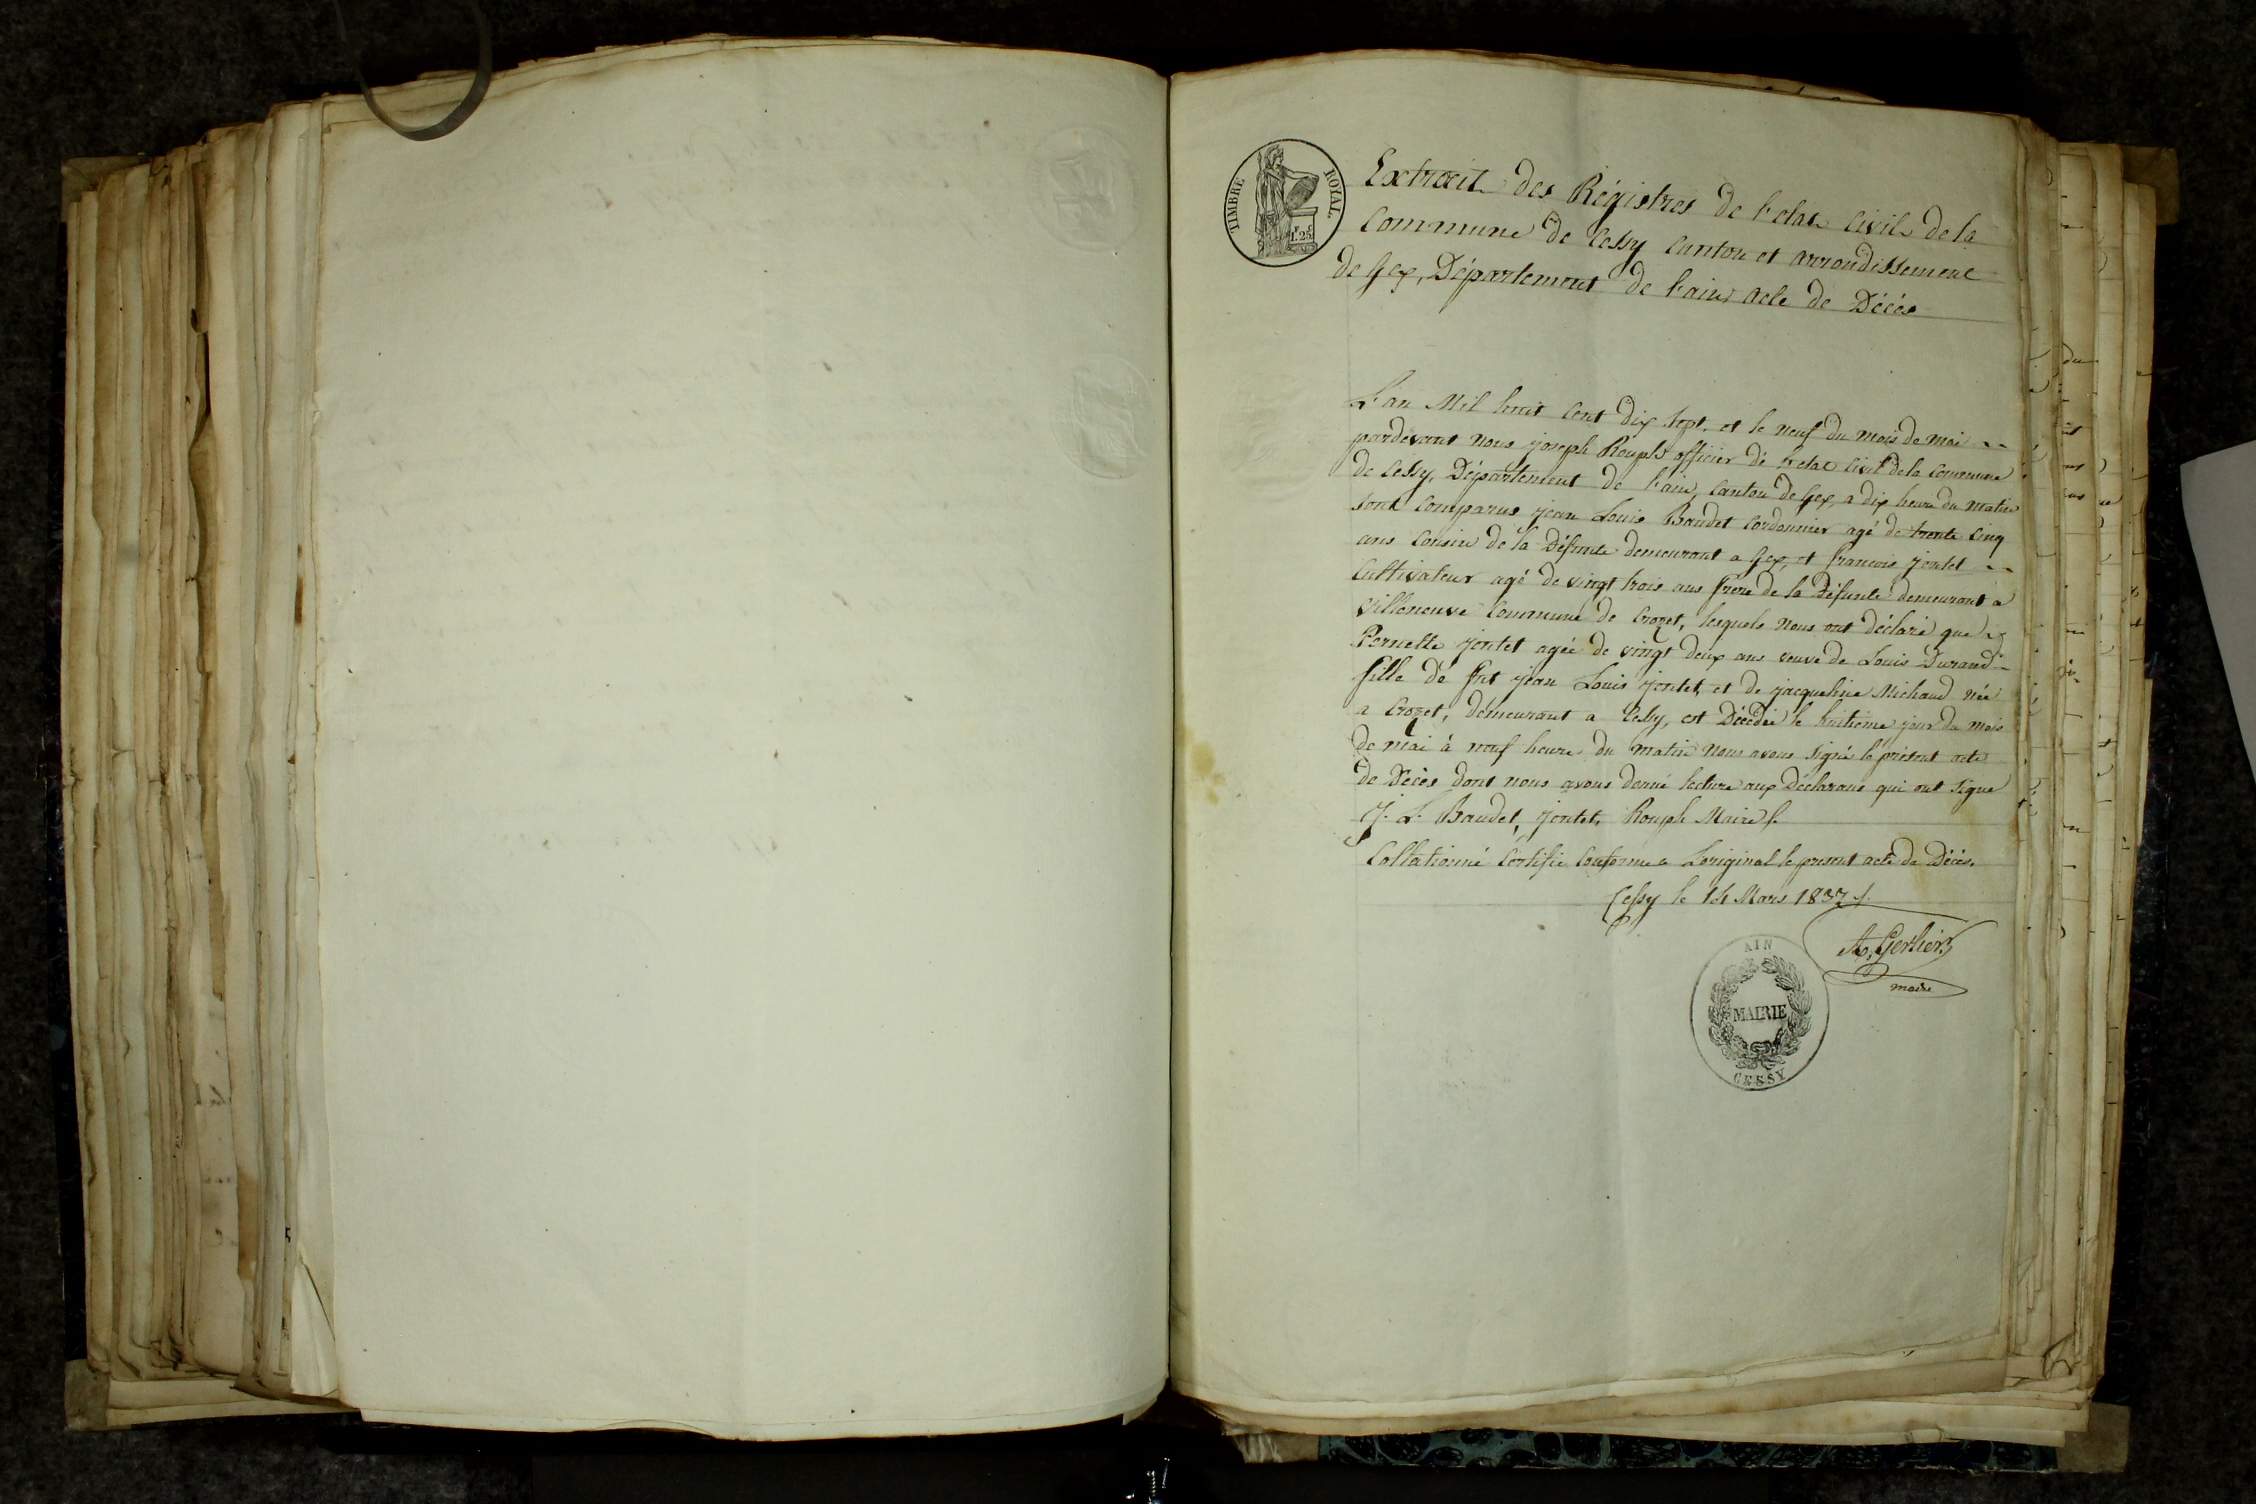 TIMBRE ROYAL
1.25
Extrait des Régistres de l'etat Civil de la
Commune de Cessy Canton et arrondissement
de Gex, Département de l'ain acte de Décès
L'an Mil huit Cent dix sept, et le neuf du mois de mai
pardevant nous joseph Rouph officier de l'etat Civil de la Commune
de Cessy, Département de l'ain, Canton de Gex, a dix heure du matin
sont Comparus jean Louis Baudet Cordonnier agé de trente Cinq
ans Cousin de la Défunte demeurant a Gex, et francois jontet
Cultivateur agé de vingt trois ans frere de la Défunte demeurant a
Villeneuve Commune de Crozet, lesquels nous ont déclaré que
Pernette jontet agée de vingt deux ans veuve de Louis Durand
fille de feu jean Louis jontet, et de jacqueline Michaud née
a Crozet, demeurant a Cessy, est Décédée le huitieme jour du mois
de mai à neuf heure du matin nous avons signé le présent acte
de Décès dont nous avons donné lecture aux Déclarans qui ont signe
J. L. Baudet, jontet, Rouph Maire
Collationné Certifié Conforme a Loriginal le present acte de Décès.
Cessy le 14 Mars 1837
Gerlier
maire
AIN
MAIRIE
CESSY